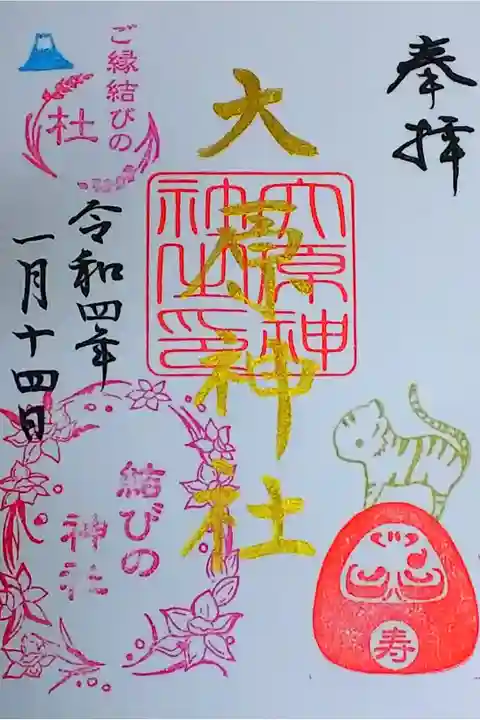 奉拝
大原神社
大原神
社之印
ご縁結びの
杜
令和四年
一月十四日
結びの
神社
寿